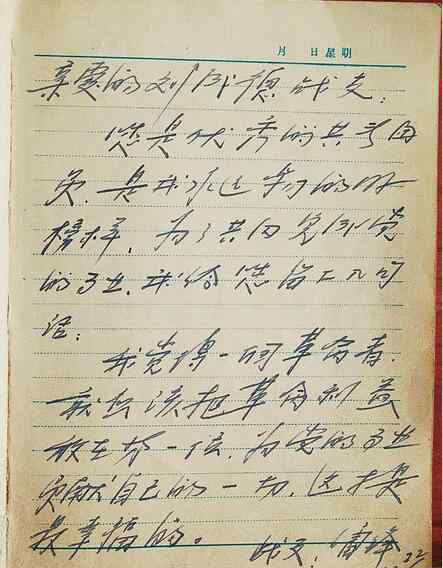 月 日 星期
亲爱的刘成德战友：
您是优秀的共青团
员，是我永远学习的好
榜样，为了共同完成党
的事业，我给您留上几句
话：
我觉得一個革命者，
就应该把革命利益
放在第一位，为党的事业
贡献出自己的一切，这才是
最幸福的。
战友：雷锋